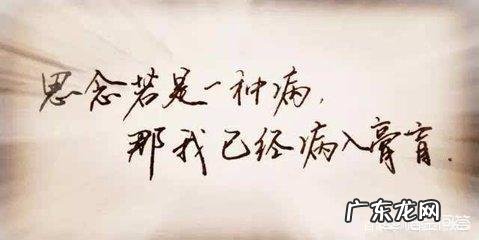 思念若是一种病,
那我已经病入膏肓.
广东龙网